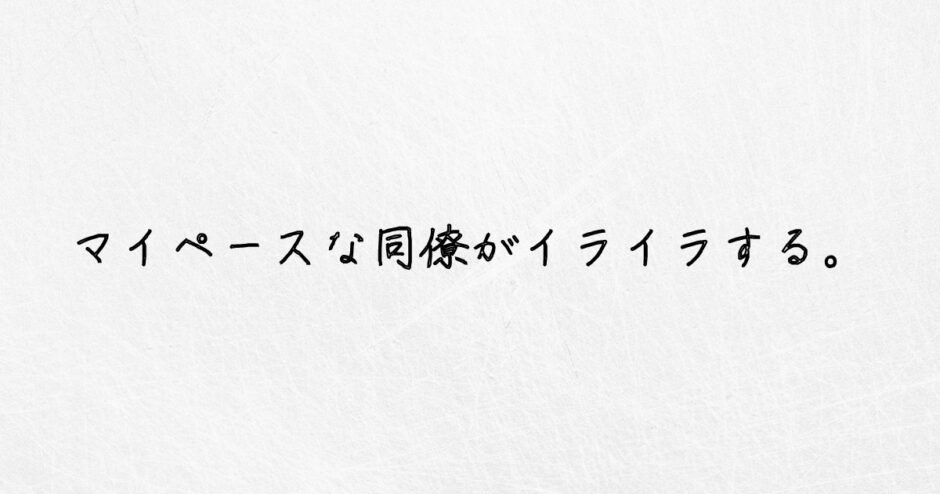 マイペースな同僚がイライラする。